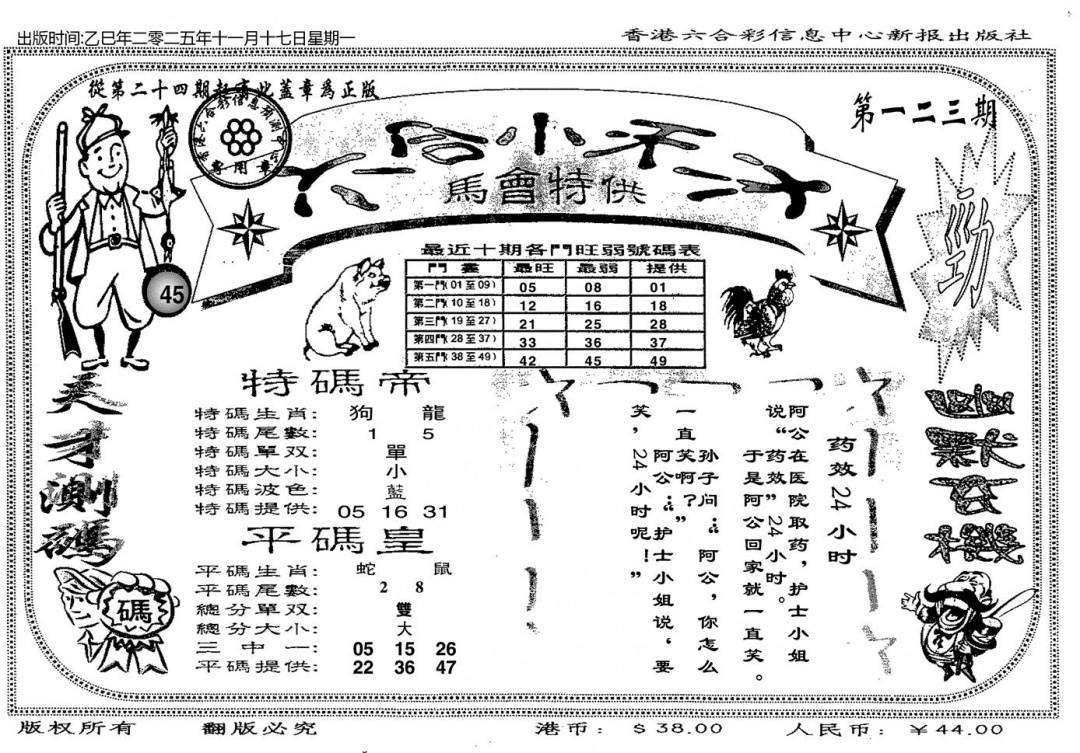 出版时间:乙巳年二零二五年十一月十七日星期一
香港六合彩信息中心新报出版社
從第二十四期起亦此蓋章爲正版
專用章
第一二三期
六合小禾三才
馬會特供
勁
45
最近十期各門旺弱號碼表
門 最旺 最弱 提供
第一門(01至09) 05 08 01
第二門(10至18) 12 16 18
第三門(19至27) 21 25 28
第四門(28至37) 33 36 37
第五門(38至49) 42 45 49
天才測碼
特碼帝
特碼生肖: 狗 龍
特碼尾數: 1 5
特碼單双: 單
特碼大小: 小
特碼波色: 藍
特碼提供: 05 16 31
平碼皇
平碼生肖: 蛇 鼠
平碼尾數: 2 8
總分單双: 雙
總分大小: 大
三中一: 05 15 26
平碼提供: 22 36 47
碼
药效24小时
阿公在医院取药，护士小姐
说“药效”24小时。
于是阿公回家就一直笑。
孙子问：“阿公，你怎么
一直笑啊？”
阿公：“护士小姐说，要
笑，24小时呢！”
幽默玄機
版权所有
翻版必究
港币： $38.00
人民币： ￥44.00